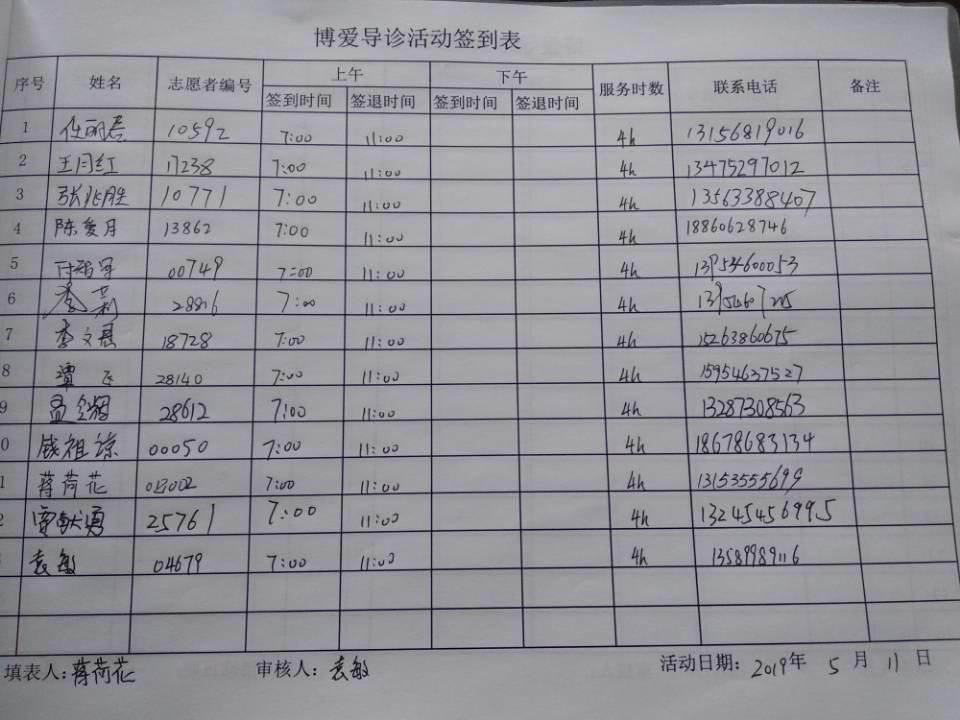 博爱导诊活动签到表
序号 姓名 志愿者编号 上午 下午 服务时数 联系电话 备注
签到时间 签退时间 签到时间 签退时间
1 任丽春 10592 7:00 11:00 4h 13156819016
2 王月红 17238 7:00 11:00 4h 13475297012
3 张兆胜 10771 7:00 11:00 4h 13563388407
4 陈爱月 13862 7:00 11:00 4h 18860628746
5 00749 7:00 11:00 4h 13954600053
6 李莉 28816 7:00 11:00 4h
7 李文 18728 7:00 11:00 4h 15263860675
8 谭飞 28140 7:00 11:00 4h 15954637527
9 孟 28612 7:00 11:00 4h 13287308563
0 钱祖琼 00050 7:00 11:00 4h 18678683134
1 蒋荷花 7:00 11:00 4h 13153555699
2 雷献勇 25761 7:00 11:00 4h 13245456995
袁敏 04679 7:00 11:00 4h 13589989116
填表人:蒋荷花 审核人:袁敏 活动日期:2019年 5月 11日